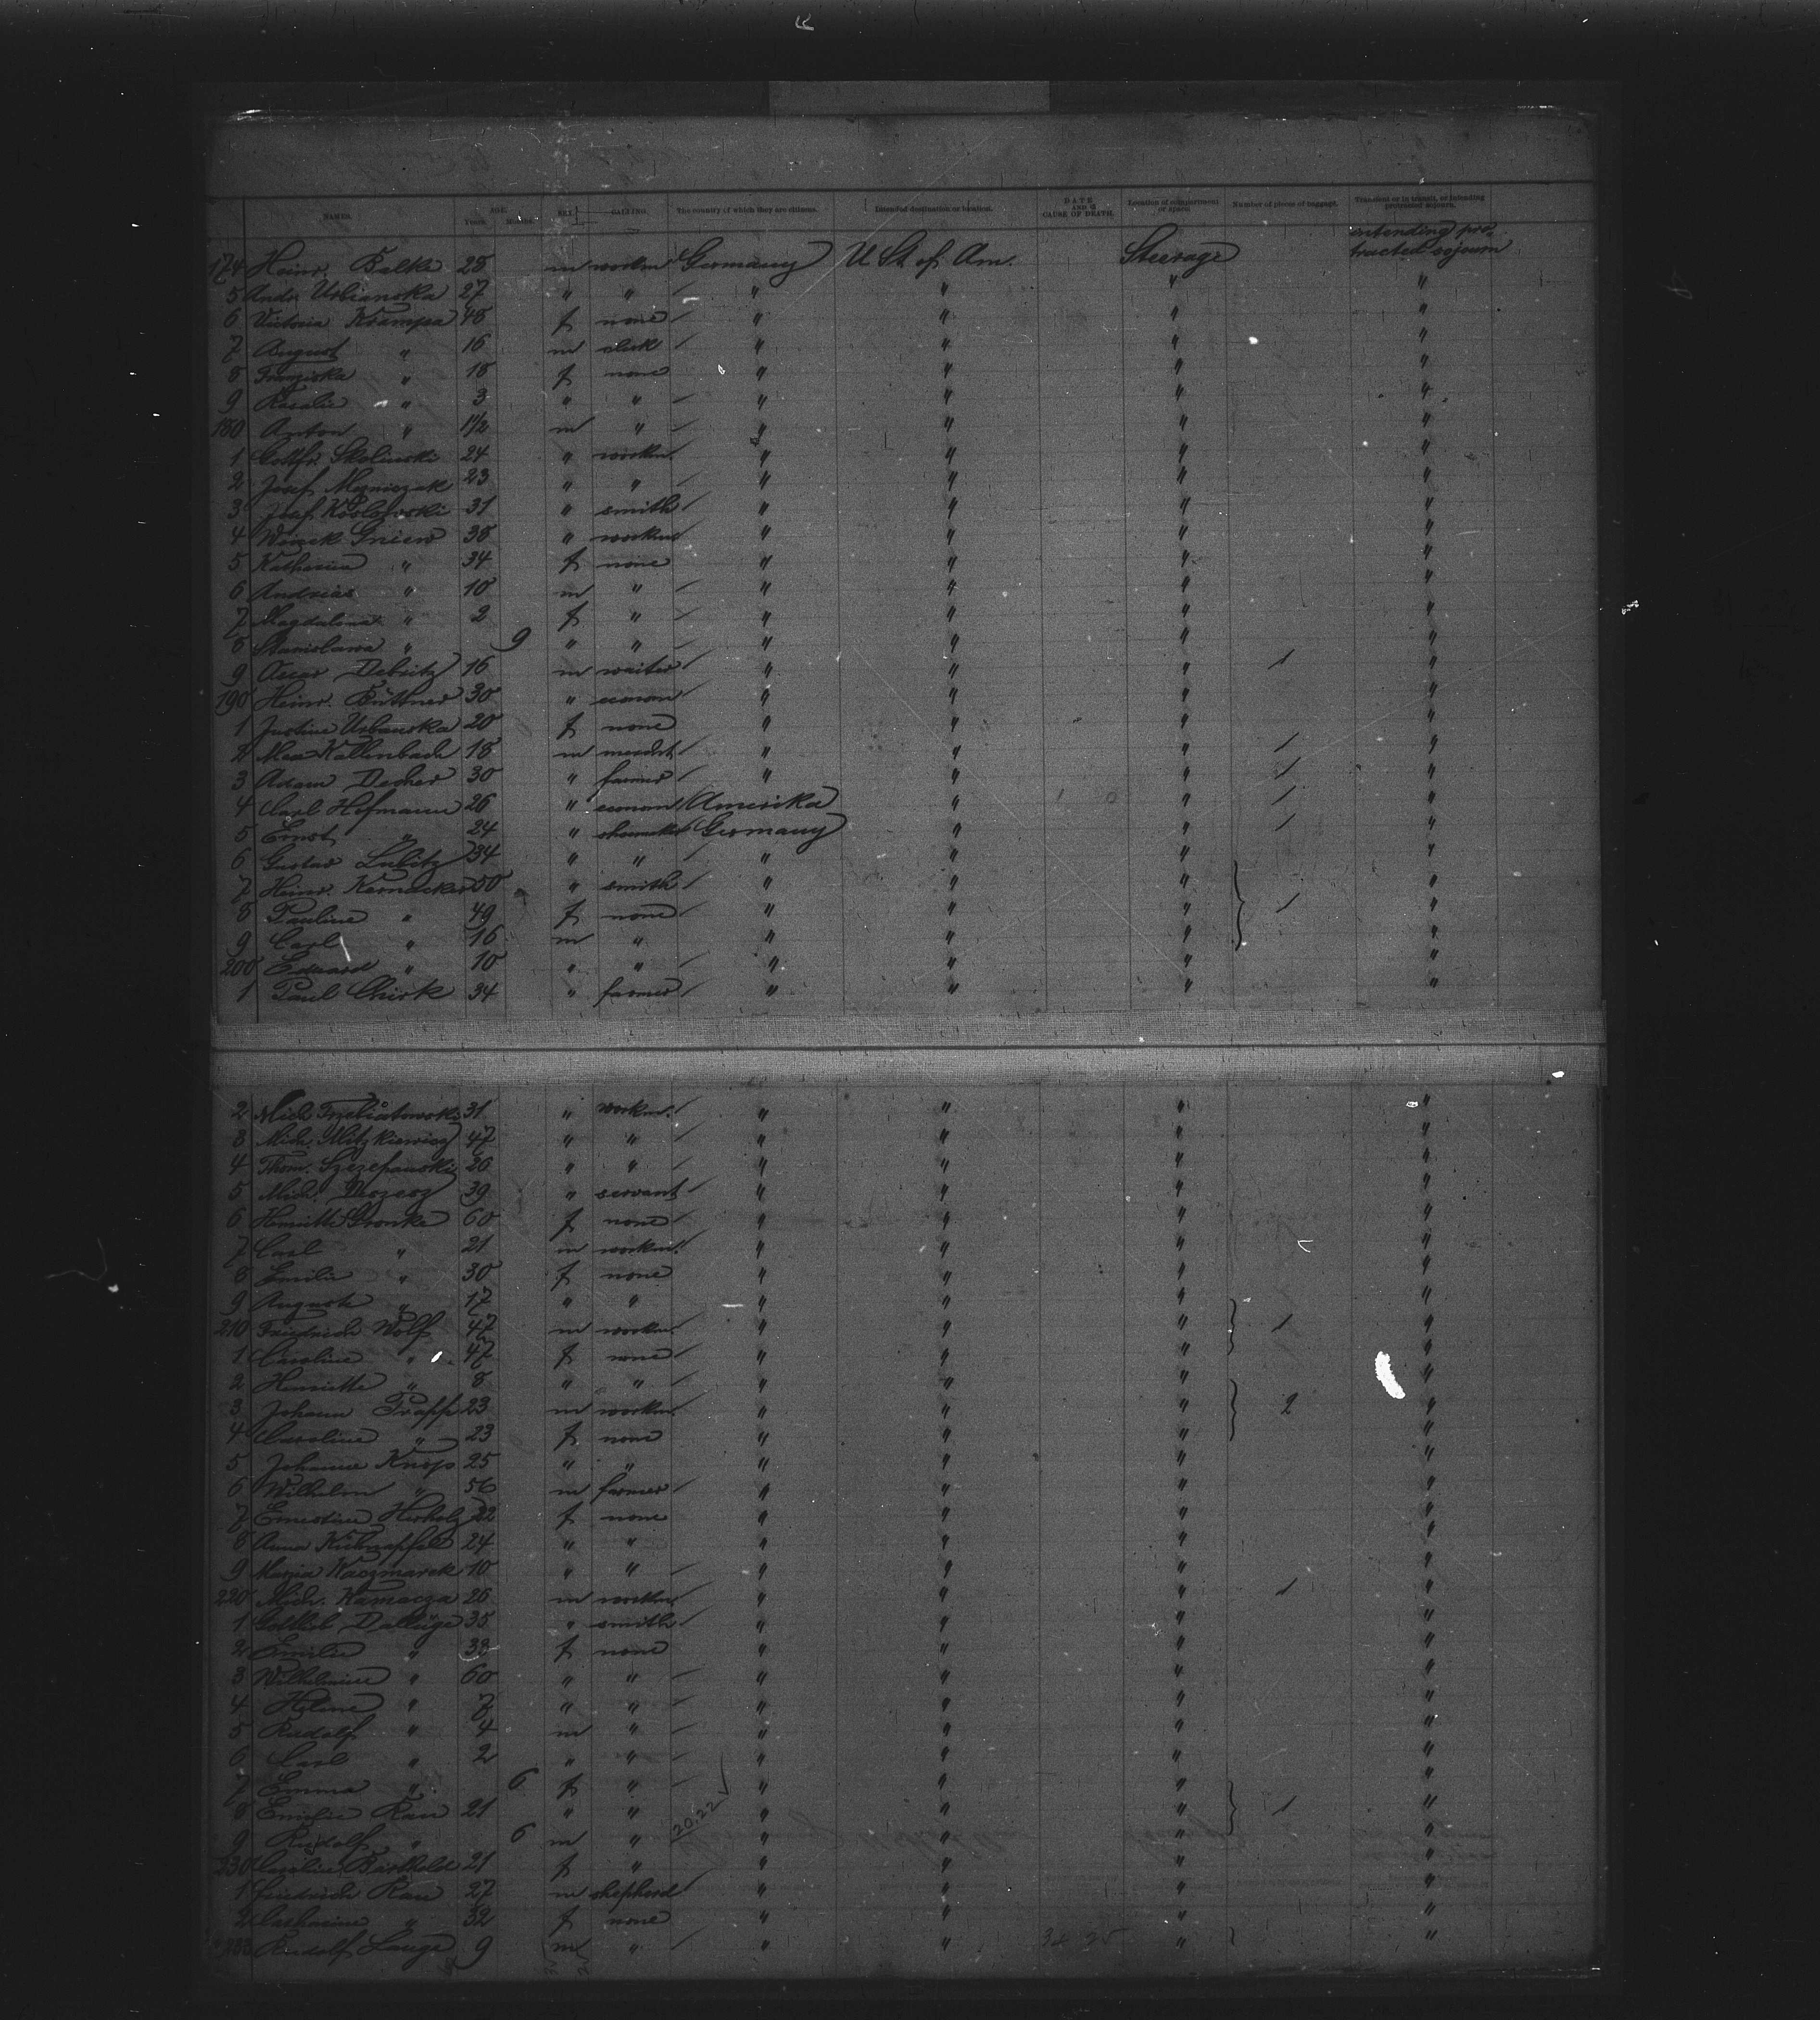 NAMES. AGE. Years. Months. SEX. CALLING. The country of which they are citizens. Intended destination or location. DATE AND CAUSE OF DEATH. Location of compartment or space. Number of pieces of baggage. Transient or in transit, or intending protracted sojourn.
174 Heinr. Balke 28 m workm Germany U St of Am. Steerage intending protracted sojourn
5 Andr. Urbanska 27 " " " " " "
6 Victoria Krampa 48 f none " " " "
7 August " 16 m clerk " " " "
8 Franziska " 18 f none " " " "
9 Rosalie " 3 " " " " " "
180 Anton " 1½ m " " " " "
1 Gottfr. Skolinski 24 " workm " " " "
2 Josef 23 " " " " " "
3 Josef Koslowski 31 " smith " " " "
4 Woizek Gniew 38 " workm " " " "
5 Katharina " 34 f none " " " "
6 Andreas " 10 m " " " " "
7 Magdalena " 2 f " " " " "
8 Stanislawa " 9 " " " " " "
9 Oscar Debitz 16 m waiter " " " 1 "
190 Heinr. Büttner 30 " econom " " " "
1 Justine Urbanska 20 f none " " " "
2 Max Kallenbach 18 m mercht " " " 1 "
3 Adam Decher 30 " farmer " " " 1 "
4 Carl Hofmann 26 " econom Amerika " " 1 "
5 Ernst " 24 " shoemaker Germany " " 1 "
6 Gustav Lubitz 34 " " " " " "
7 Heinr. Kernacker 50 " smith " " " "
8 Pauline " 49 f none " " " 1 "
9 Carl " 16 m " " " " "
200 Eduard " 10 " " " " " "
1 Paul Chirk 34 " farmer " " " "
2 Mich. Trzebiatowski 31 " workm. " " " "
3 Mich. Mitzkiewicz 47 " " " " " "
4 Thom. Szczepanski 26 " " " " " "
5 Mich. 39 " servant " " " "
6 Henriette Gronke 60 f none " " " "
7 Carl " 21 m workm. " " " "
8 Emilie " 30 f none " " " "
9 Auguste " 17 " " " " " "
210 Friedrich Wolf 47 m workm " " " 1 "
1 Caroline " 47 f none " " " "
2 Henriette " 8 " " " " " "
3 Johann Trapp 23 m workm " " " 2 "
4 Caroline " 23 f none " " " "
5 Johanna Knop 25 " " " " " "
6 Wilhelm " 56 m farmer " " " "
7 Ernestine Herholz 22 f none " " " "
8 Anna Kühnapfel 24 " " " " " "
9 Maria Kaczmarek 10 " " " " " "
220 Mich. Kamacza 26 m workm " " " 1 "
1 Gottlieb Dallüge 35 " smith " " " "
2 Emilie " 33 f none " " " "
3 Wilhelmine " 60 " " " " " "
4 Helene " 7 " " " " " "
5 Rudolf " 4 m " " " " "
6 Carl " 2 " " " " " "
7 Emma " 6 f " " " " "
8 Emilie Rau 21 " " " " " 1 "
9 Rudolf " 6 m " 20.22 " " " "
230 Caroline Barthold 21 f " " " " "
1 Friedrich Rau 27 m shepherd " " " "
2 Catharine " 32 f none " " " "
233 Rudolf Lange 9 m " " " " "